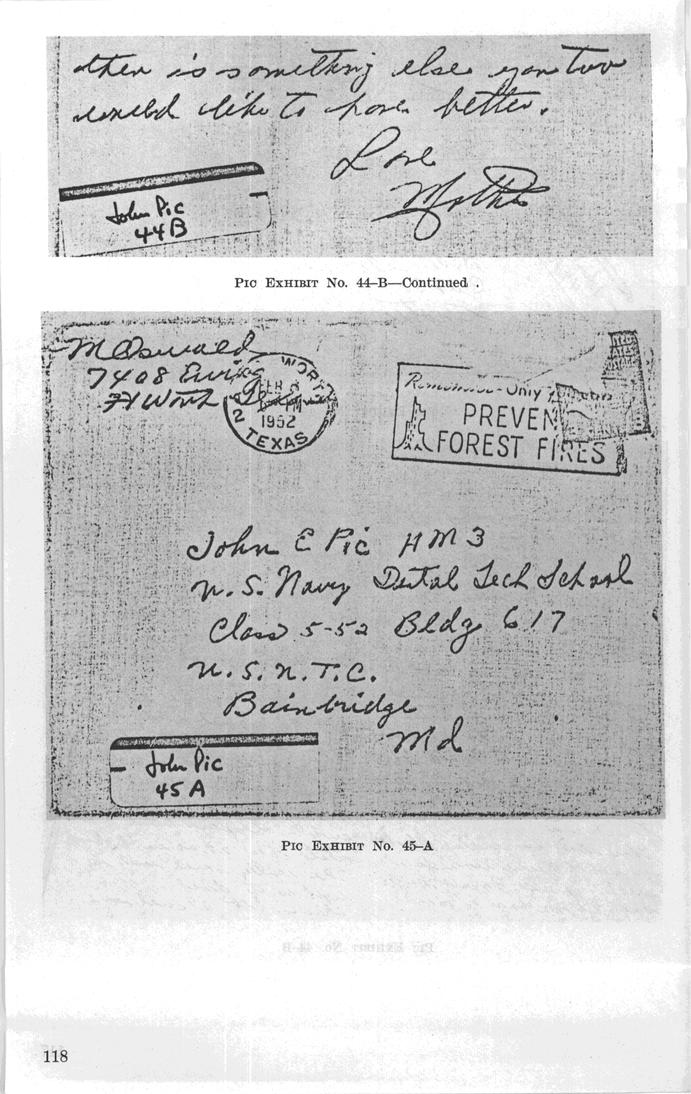 then is something else you two
would like to have better.
Love
Mother
John Pic
44 B
PIC EXHIBIT No. 44-B—Continued .
M Oswald
7408 Ewing
Ft Worth Texas
WORTH
FEB 8
2 PM
1952
TEXAS
Remember - Only
PREVENT
FOREST FIRES
John E Pic HM3
U. S. Navy Dental Tech School
Class 5-52 Bldg 617
U. S. N. T. C.
Bainbridge
Md
John Pic
45 A
PIC EXHIBIT No. 45-A
118